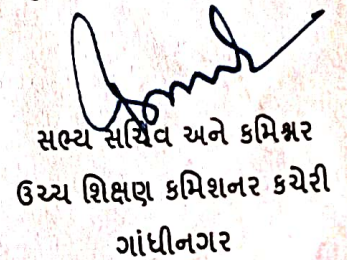 સભ્ય સચિવ અને કમિશ્નર
ઉચ્ચ શિક્ષણ કમિશનર કચેરી
ગાંધીનગર